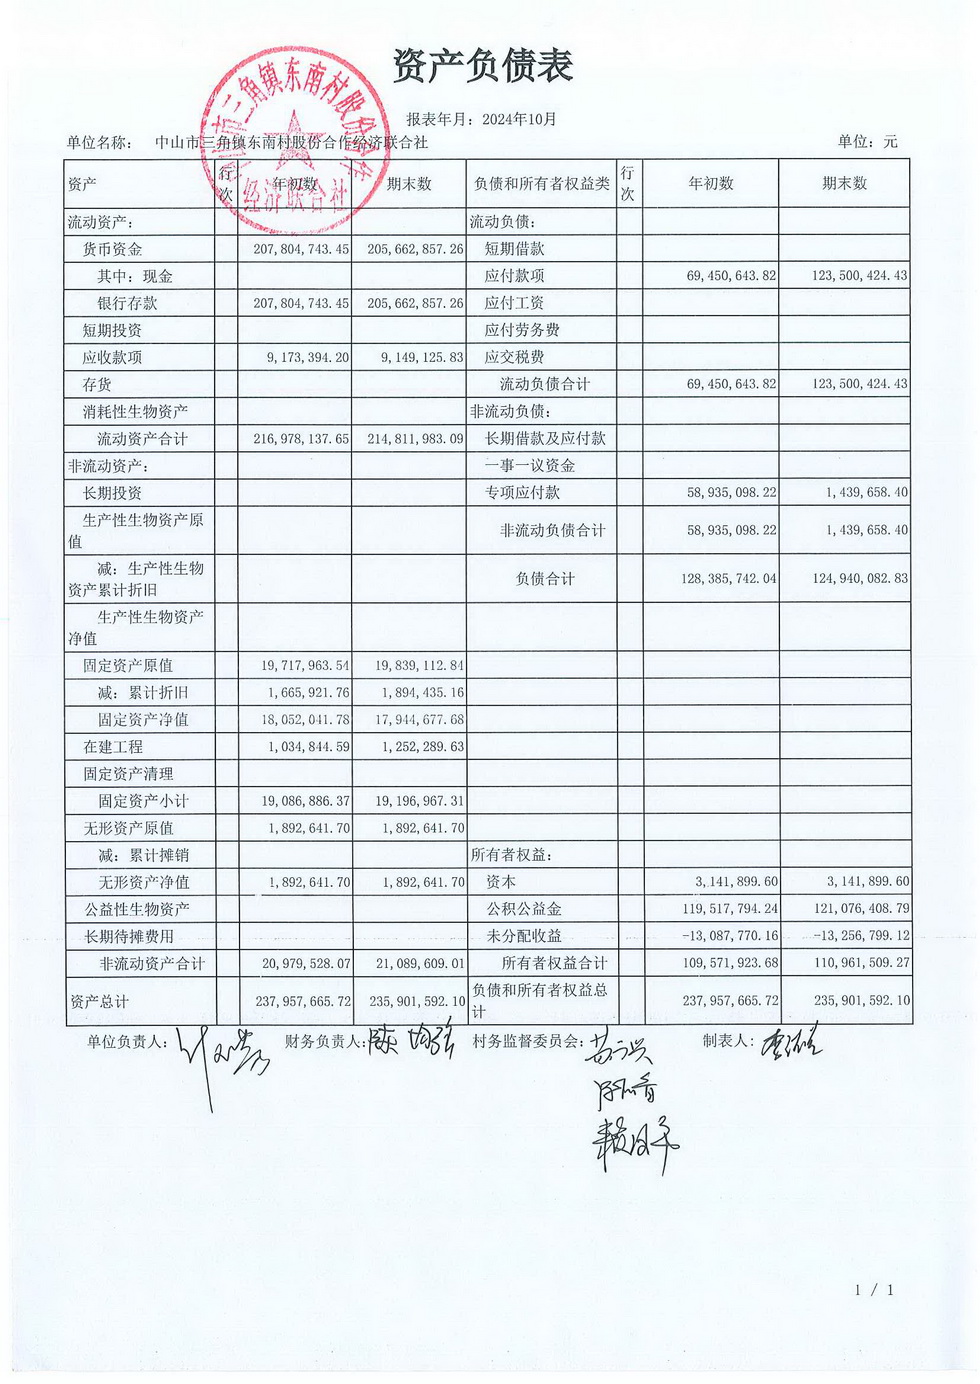 资产负债表
报表年月：2024年10月
单位名称： 中山市三角镇东南村股份合作经济联合社 单位：元
资产 行次 年初数 期末数 负债和所有者权益类 行次 年初数 期末数
流动资产： 流动负债：
货币资金 207,804,743.45 205,662,857.26 短期借款
其中：现金 应付款项 69,450,643.82 123,500,424.43
银行存款 207,804,743.45 205,662,857.26 应付工资
短期投资 应付劳务费
应收款项 9,173,394.20 9,149,125.83 应交税费
存货 流动负债合计 69,450,643.82 123,500,424.43
消耗性生物资产 非流动负债：
流动资产合计 216,978,137.65 214,811,983.09 长期借款及应付款
非流动资产： 一事一议资金
长期投资 专项应付款 58,935,098.22 1,439,658.40
生产性生物资产原值 非流动负债合计 58,935,098.22 1,439,658.40
减：生产性生物资产累计折旧 负债合计 128,385,742.04 124,940,082.83
生产性生物资产净值
固定资产原值 19,717,963.54 19,839,112.84
减：累计折旧 1,665,921.76 1,894,435.16
固定资产净值 18,052,041.78 17,944,677.68
在建工程 1,034,844.59 1,252,289.63
固定资产清理
固定资产小计 19,086,886.37 19,196,967.31
无形资产原值 1,892,641.70 1,892,641.70
减：累计摊销 所有者权益：
无形资产净值 1,892,641.70 1,892,641.70 资本 3,141,899.60 3,141,899.60
公益性生物资产 公积公益金 119,517,794.24 121,076,408.79
长期待摊费用 未分配收益 -13,087,770.16 -13,256,799.12
非流动资产合计 20,979,528.07 21,089,609.01 所有者权益合计 109,571,923.68 110,961,509.27
资产总计 237,957,665.72 235,901,592.10 负债和所有者权益总计 237,957,665.72 235,901,592.10
单位负责人： 财务负责人： 村务监督委员会： 制表人：
1 / 1